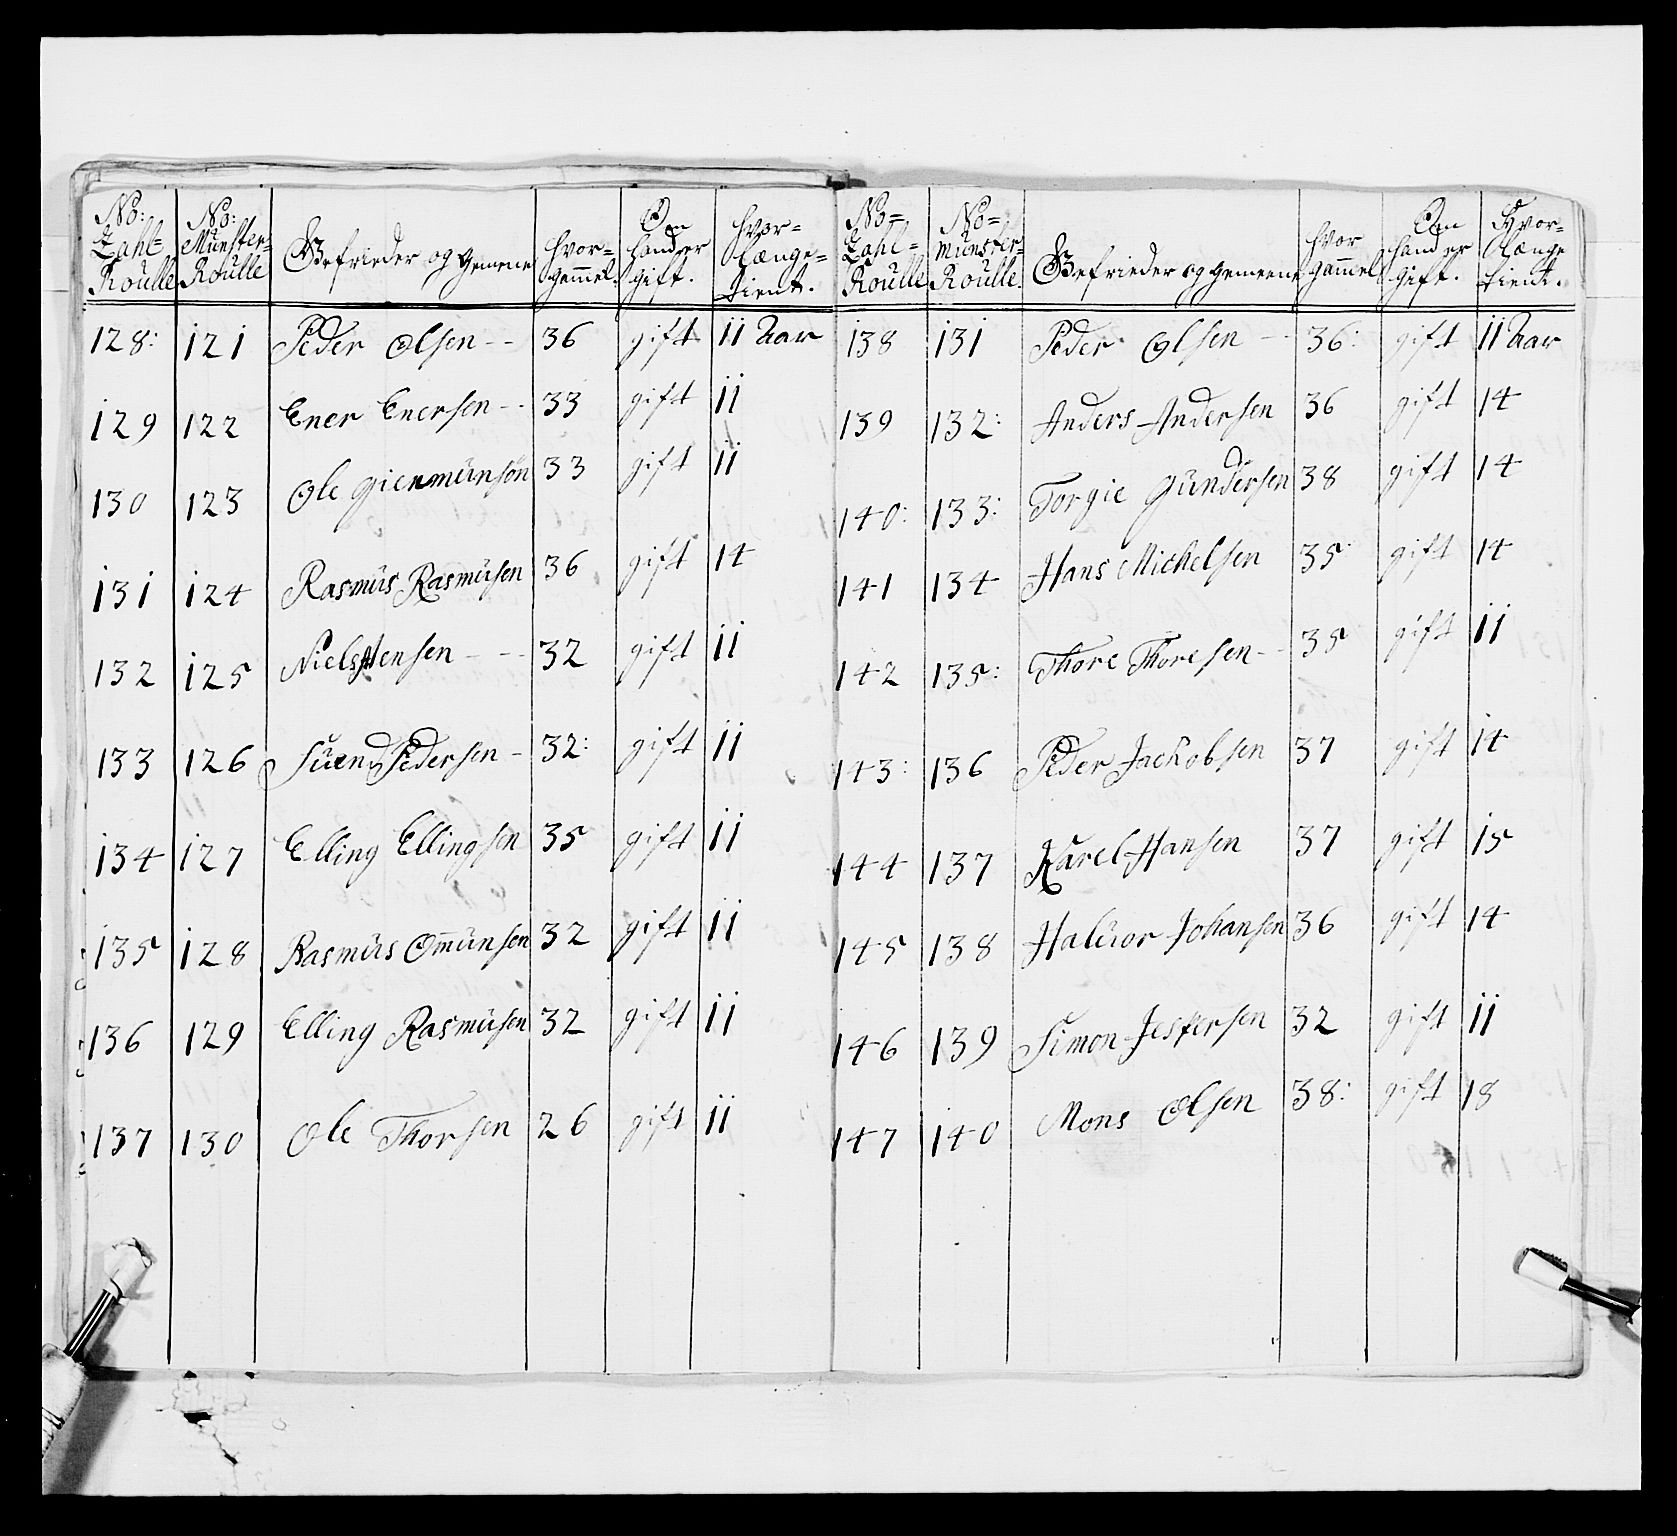 No: Zahl= Roulle | No: Münster= Roulle | Gefrieder og gemene | hvor= gammel. | Om hand er gift. | hvor= længe= tient.
128: 121 Peder Olsen -- 36 gift 11 Aar
129 122 Ener Enersen -- 33 gift 11
130 123 Ole Gienmünsøn 33 gift 11
131 124 Rasmüs Rasmüsen 36 gift 14
132 125 Niels Jensen - -- 32 gift 11
133 126 Süend Pedersen - 32: gift 11
134 127 Elling Ellingsen 35 gift 11
135 128 Rasmüs Om̄ünsen 32 gift 11
136 129 Elling Rasmüsen 32 gift 11
137 130 Ole Thorsen 26 gift 11
No=, Zahl= Roulle | No= münster= Roulle. | Gefrieder og gemeene | hvor gammel | Om hand er gift. | Hvor= længe tient.
138 131 Peder Olsen -- 36: gift 11 Aar
139 132: Anders Andersen 36 gift 14
140: 133: Torgie Gündersen 38 gift 14
141 134 Hans Michelsen 35 gift 14
142 135: Thore Thoresen -- 35 gift 11
143: 136 Peder Jachobsen 37 gift 14
144 137 Karel Hansen 37 gift 15
145 138 Halüor Johansen 36 gift 14
146 139 Simon Jespersen 32 gift 11
147 140 Mons Olsen 38: gift 18